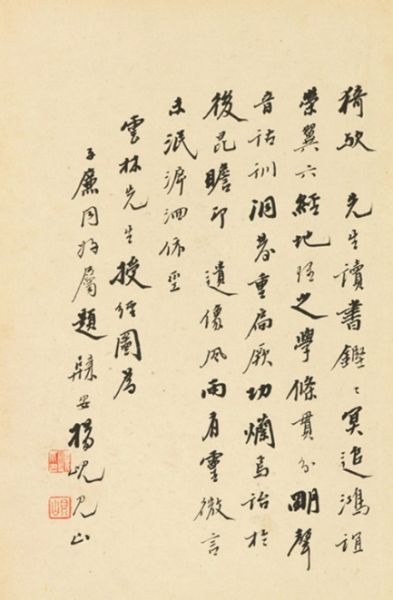 猗歟 先生讀書鏗〻冥追鴻誼
榮翼六經地理之學條貫分明聲
音詁訓洞若重扃厥功爛焉詒於
後昆瞻卬遺像風雨有靈微言
未泯泗
雲林先生授經圖為
子廉同好屬題 歸安楊峴見山